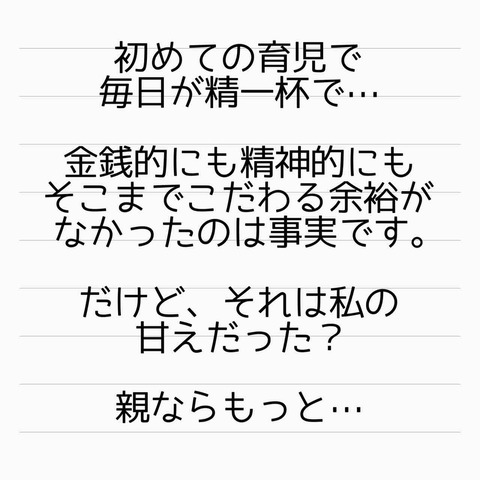 初めての育児で
毎日が精一杯で…
金銭的にも精神的にも
そこまでこだわる余裕が
なかったのは事実です。
だけど、それは私の
甘えだった？
親ならもっと…